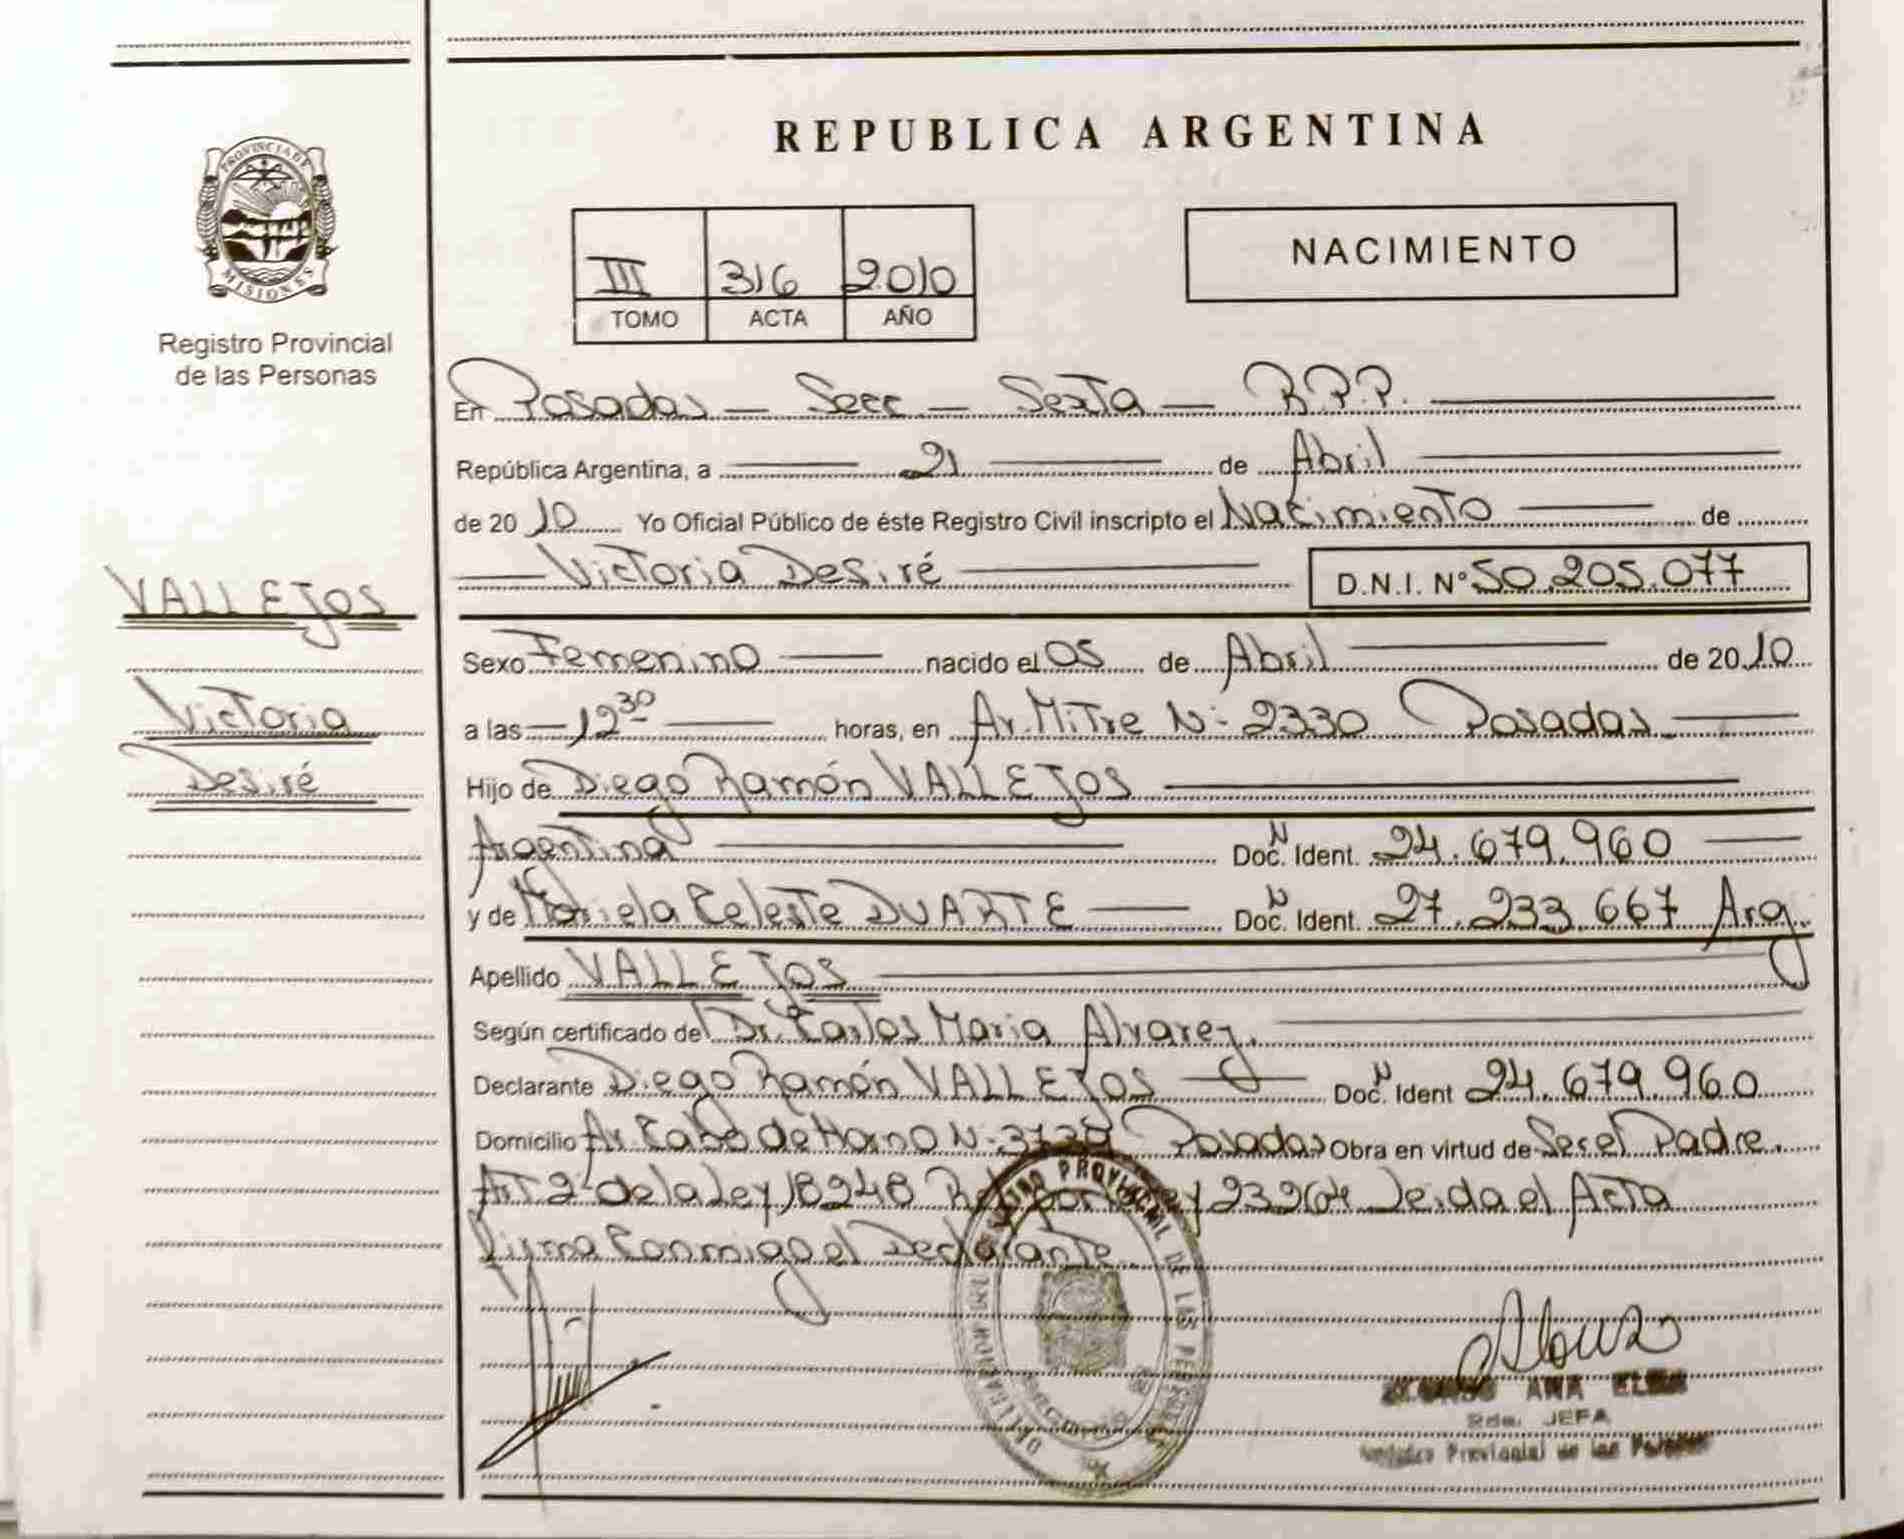 PROVINCIA DE
MISIONES
Registro Provincial
de las Personas
VALLEJOS
Victoria
Desiré
REPUBLICA ARGENTINA
III 316 2010
TOMO ACTA AÑO
NACIMIENTO
En Posadas — Secc — Sexta — R.P.P.
República Argentina, a 21 de Abril
de 2010 Yo Oficial Público de éste Registro Civil inscripto el Nacimiento de
Victoria Desiré D.N.I. Nº 50.205.077
Sexo Femenino nacido el 05 de Abril de 2010
a las 12 30 horas, en Av. Mitre Nº 2330 Posadas.
Hijo de Diego Ramón VALLEJOS
Argentina Doc. N Ident. 24.679.960
y de Mariela Celeste DUARTE Doc. N Ident. 27.233.667 Arg.
Apellido VALLEJOS
Según certificado de Dr. Carlos Maria Alvarez.
Declarante Diego Ramón VALLEJOS Doc. N Ident 24.679.960
Domicilio Av. Cabo de Horno Nº Posadas Obra en virtud de Ser el Padre.
Art 2º de la Ley 18248 Ref. por Ley 23264 Leida el Acta
firma Conmigo el Declarante.
REGISTRO PROVINCIAL DE LAS PERSONAS
ANA
JEFA
Provincial de las Personas